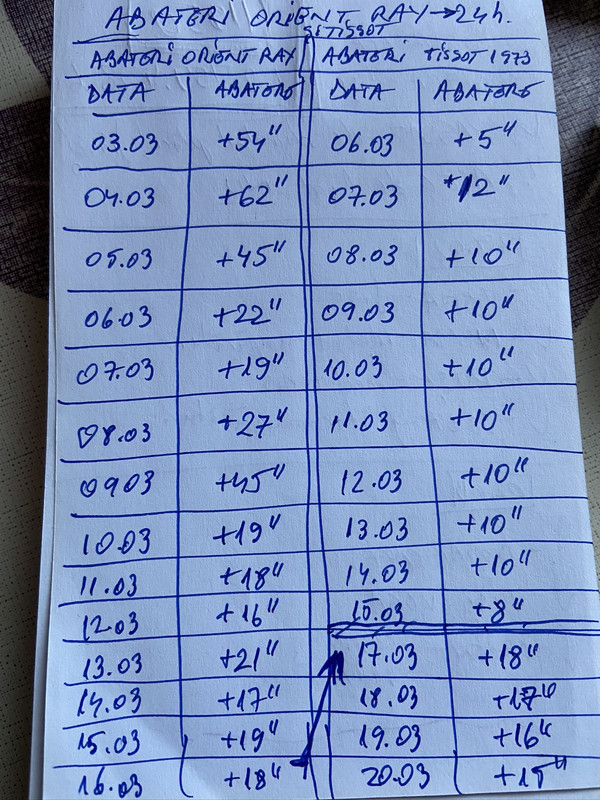 ABATERI ORIENT RAY → 24h.
SI TISSOT
ABATERI ORIENT RAY ABATERI TISSOT 1973
DATA ABATERE DATA ABATERE
03.03 +54" 06.03 +5"
04.03 +62" 07.03 +12"
05.03 +45" 08.03 +10"
06.03 +22" 09.03 +10"
07.03 +19" 10.03 +10"
08.03 +27" 11.03 +10"
09.03 +45" 12.03 +10"
10.03 +19" 13.03 +10"
11.03 +18" 14.03 +10"
12.03 +16" 15.03 +8"
13.03 +21" 17.03 +18"
14.03 +17" 18.03 +17"
15.03 +19" 19.03 +16"
16.03 +18" 20.03 +15"